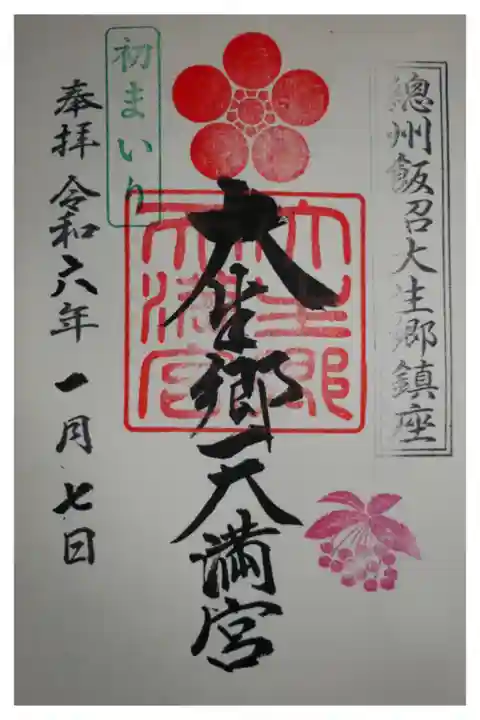 總州飯沼大生郷鎮座
大生郷天満宮
大生郷
天満宮
初まいり
奉拝 令和六年 一月 七日